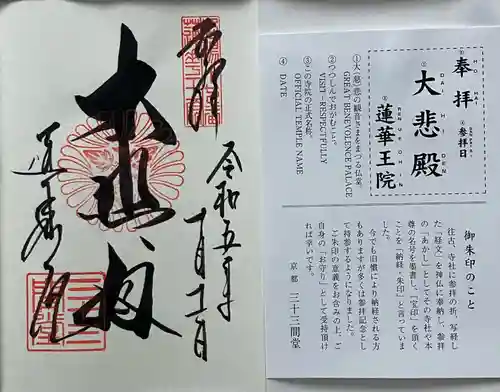 奉拝
大悲殿
蓮華王院
令和五年
十月十一日
②
HO HAI
奉拝
④参拝日
①
DAI HI DEN
大悲殿
③
REN GE OH IN
蓮華王院
①大(慈)悲の観音さまをまつる仏堂。
GREAT BENEVOLENCE PALACE
②つつしんでおがむこと。
VISIT RESPECTFULLY
③この寺院の正式名称。
OFFICIAL TEMPLE NAME
④
DATE
御朱印のこと
往古、寺社に参拝の折、写経し
た「経文」を神仏に奉納し、参拝
の「あかし」としてその寺社や本
尊の名号を墨書し、「宝印」を頂く
ことを「納経・朱印」と言っていま
した。
今でも旧慣により納経される方
もありますが多くは参拝記念とし
て持参するようになりました。
ご朱印の意義をお含みの上、ご
自身の「お守り」として受持頂け
れば幸いです。
京都 三十三間堂